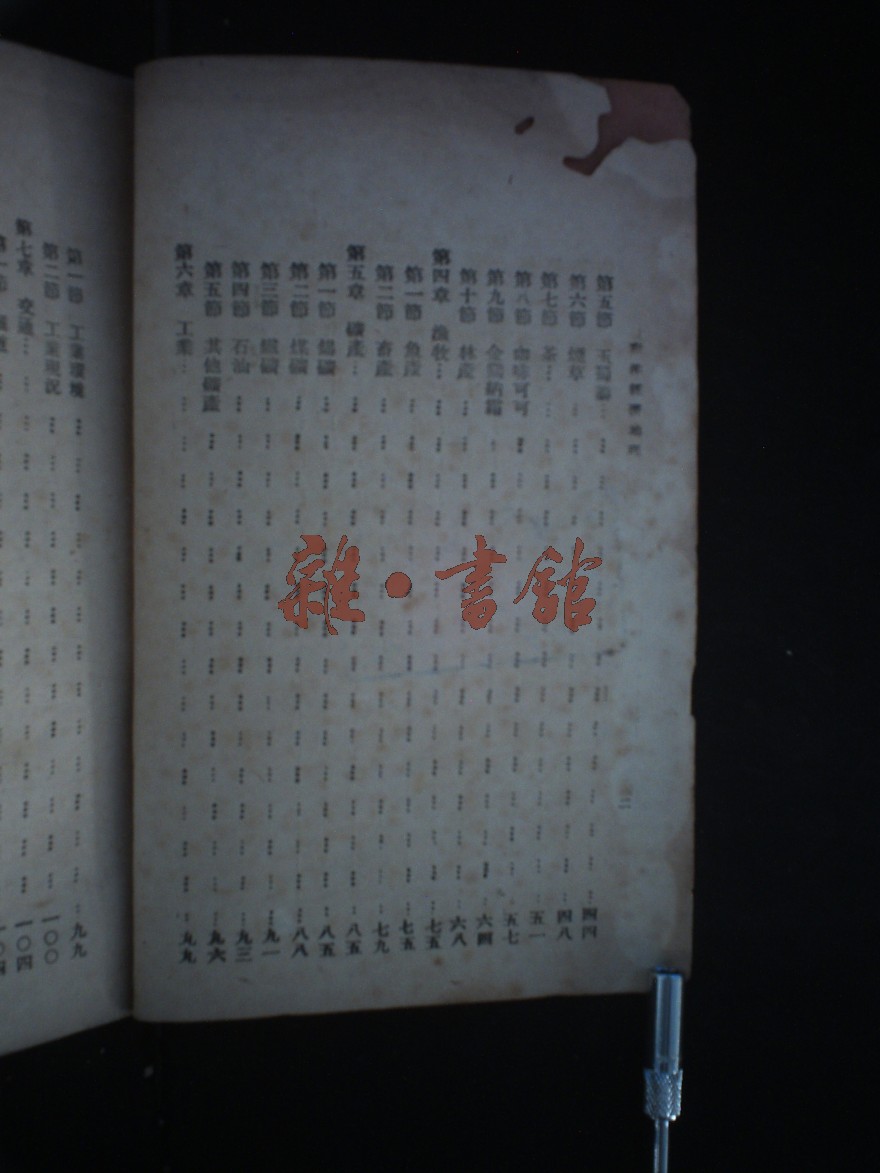 二
第五節 玉蜀黍 四四
第六節 煙草 四八
第七節 茶 五一
第八節 咖啡可可 五七
第九節 金雞納霜 六四
第十節 林產 六八
第四章 漁牧 七五
第一節 魚產 七五
第二節 畜產 七九
第五章 礦產 八五
第一節 錫礦 八五
第二節 煤礦 八八
第三節 鐵礦 九一
第四節 石油 九三
第五節 其他礦產 九六
第六章 工業 九九
第一節 工業環境 九九
第二節 工業現況 一〇〇
第七章 交通 一〇四
第一節 一〇四
雜·書館